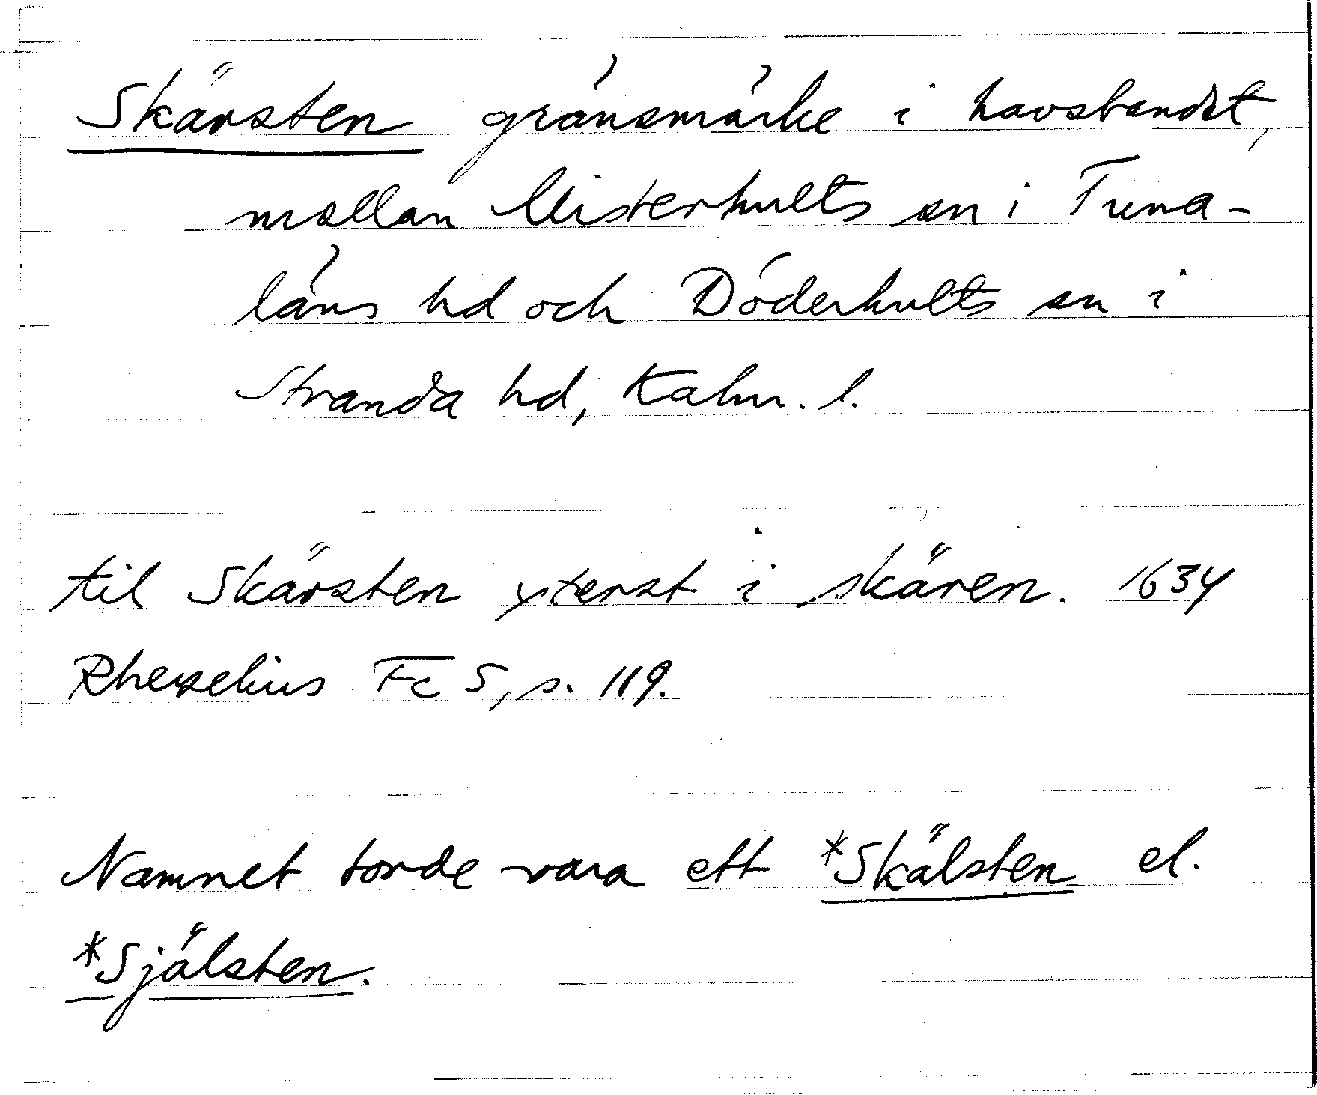 Skärsten gränsmärke i havsbandet,
mellan Misterhults sn i Tuna-
läns hd och Döderhults sn i
Stranda hd, Kalm. l.
til Skärsten ytterst i skären. 1634
Rhezelius Fc 5, s. 119.
Namnet torde vara ett *Skälsten el.
*Själsten.